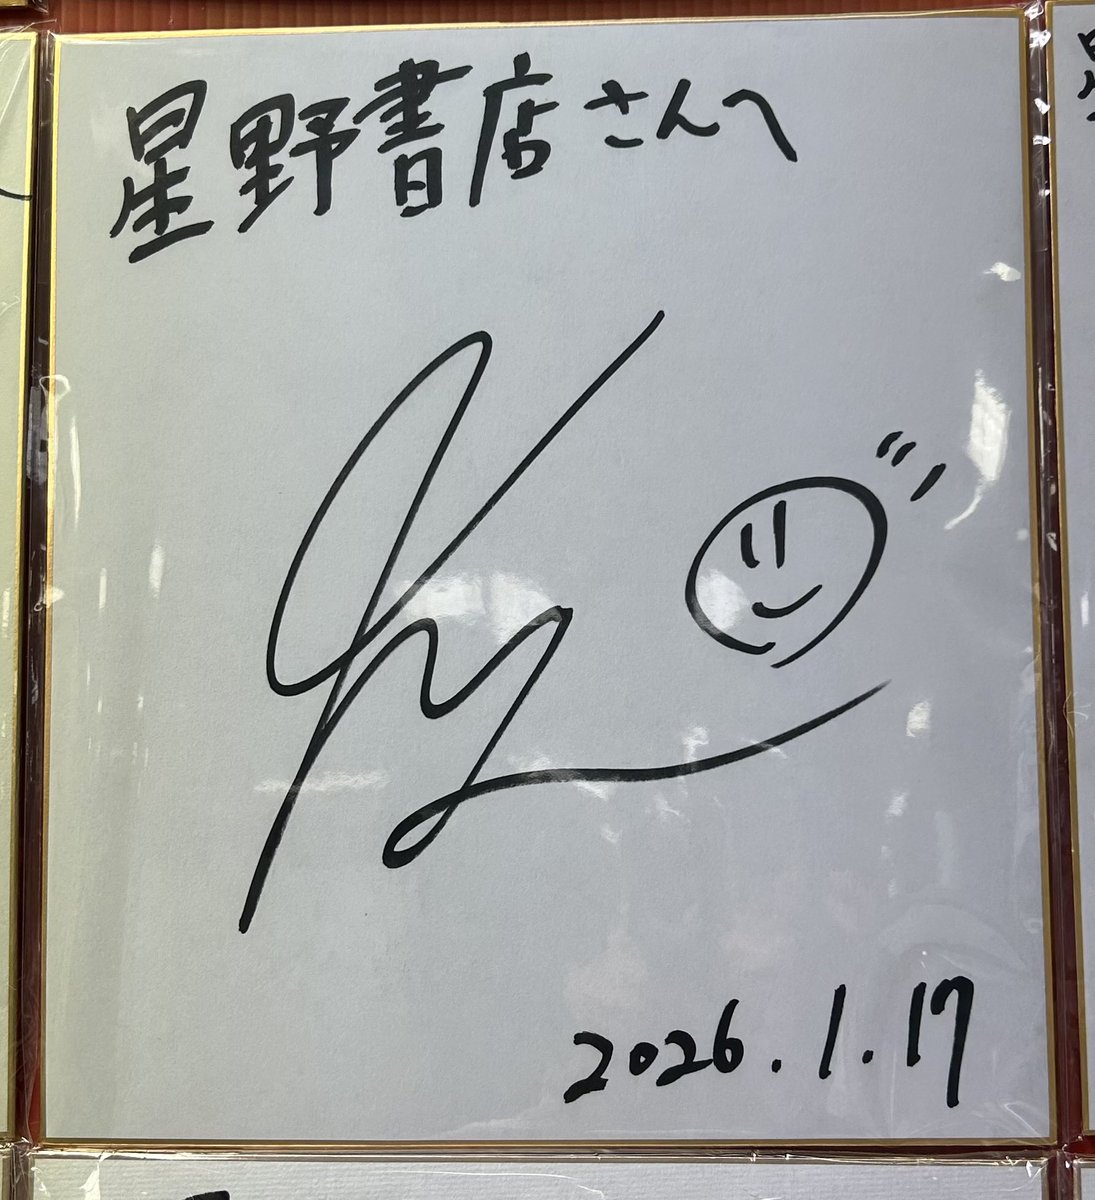 星野書店さんへ
2026.1.17